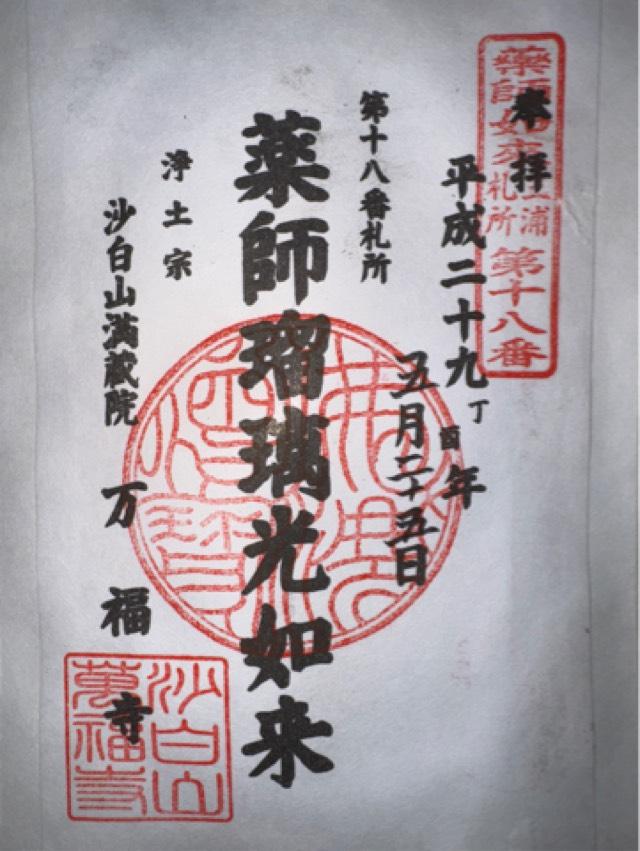 奉拝
薬師如来三浦札所第十八番
平成二十九丁酉年
五月二十五日
第十八番札所
薬師瑠璃光如来
浄土宗
沙白山満蔵院 万福寺
沙白山
萬福寺